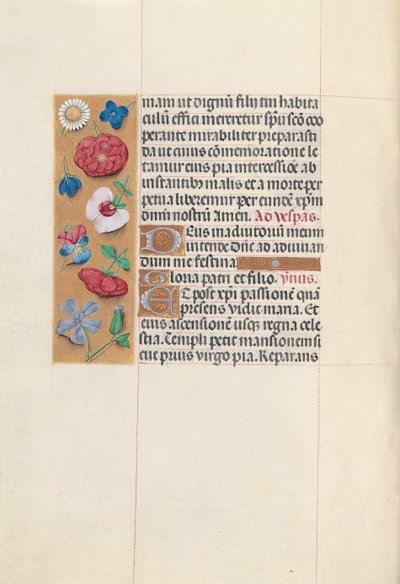 mam ut dignū filij tui habita
culū effici mereretur spū scō coo
perante mirabiliter preparasti
da ut cuius cōmemoratione le
tamur eius pia intercessiōe ab
instantibus malis et a morte per
petua liberemur per eundē xp̄m
dnm nostrū Amen. Ad vespas.
Deus in adiutoriū meum
intende Dn̄e ad adiuuan
dum me festina
Gloria patri et filio. ym̄us.
Et post xp̄i passionē quā
presens vidit maria. Et
eius ascensionē usq3 regna cele
stia. Templi petit mansionem si
cut prius virgo pia. Reparans